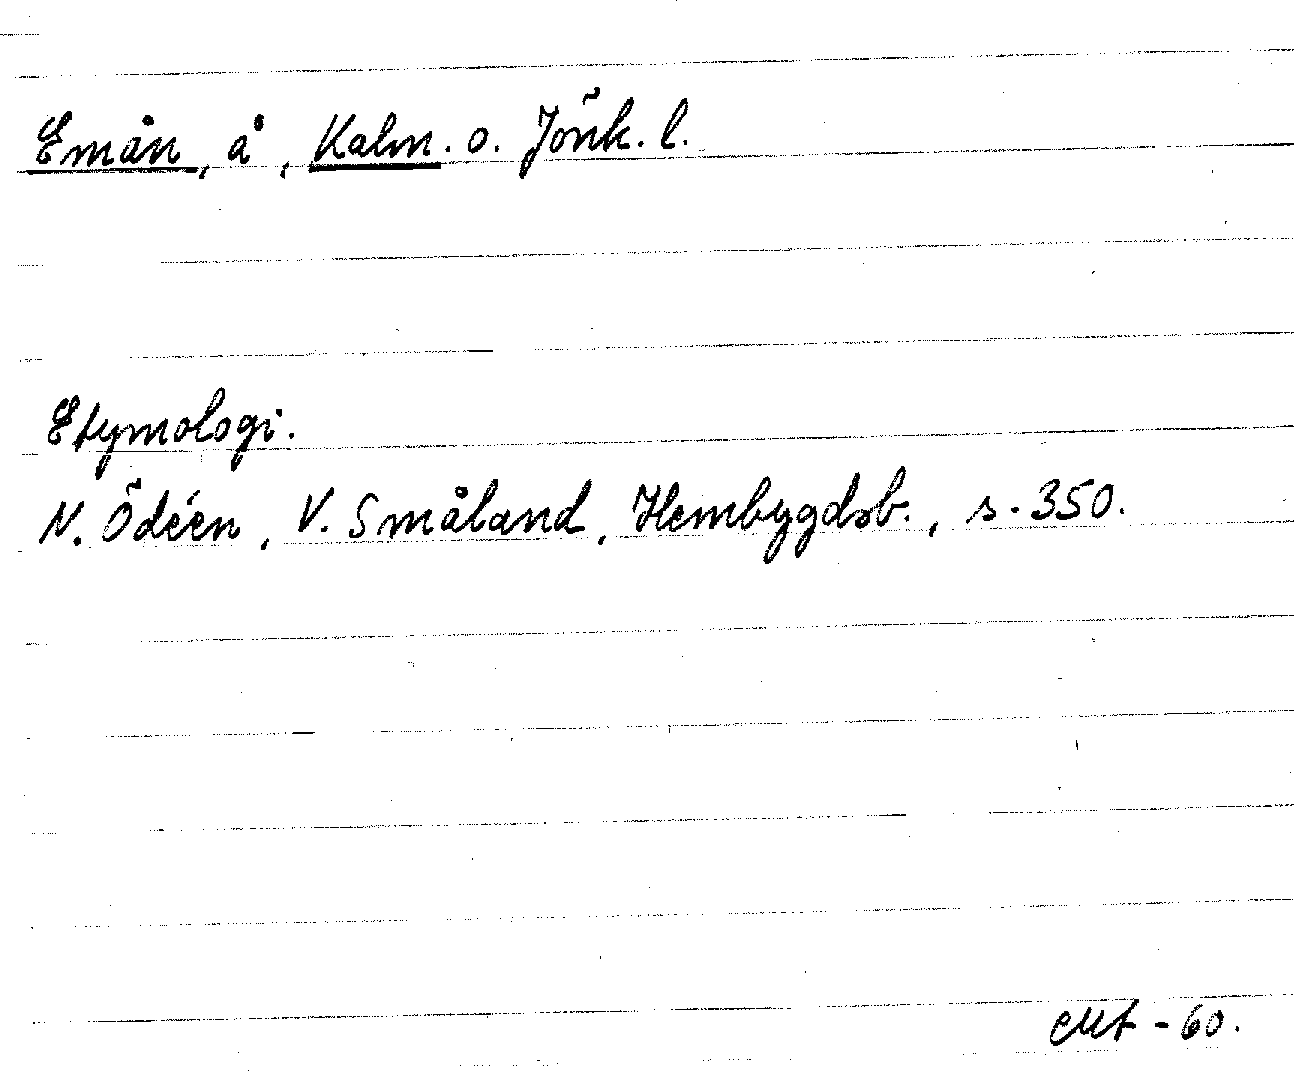 Emån, å, Kalm. o. Jönk. l.
Etymologi.
N. Ödéen, V. Småland, Hembygdsb., s. 350.
-60.